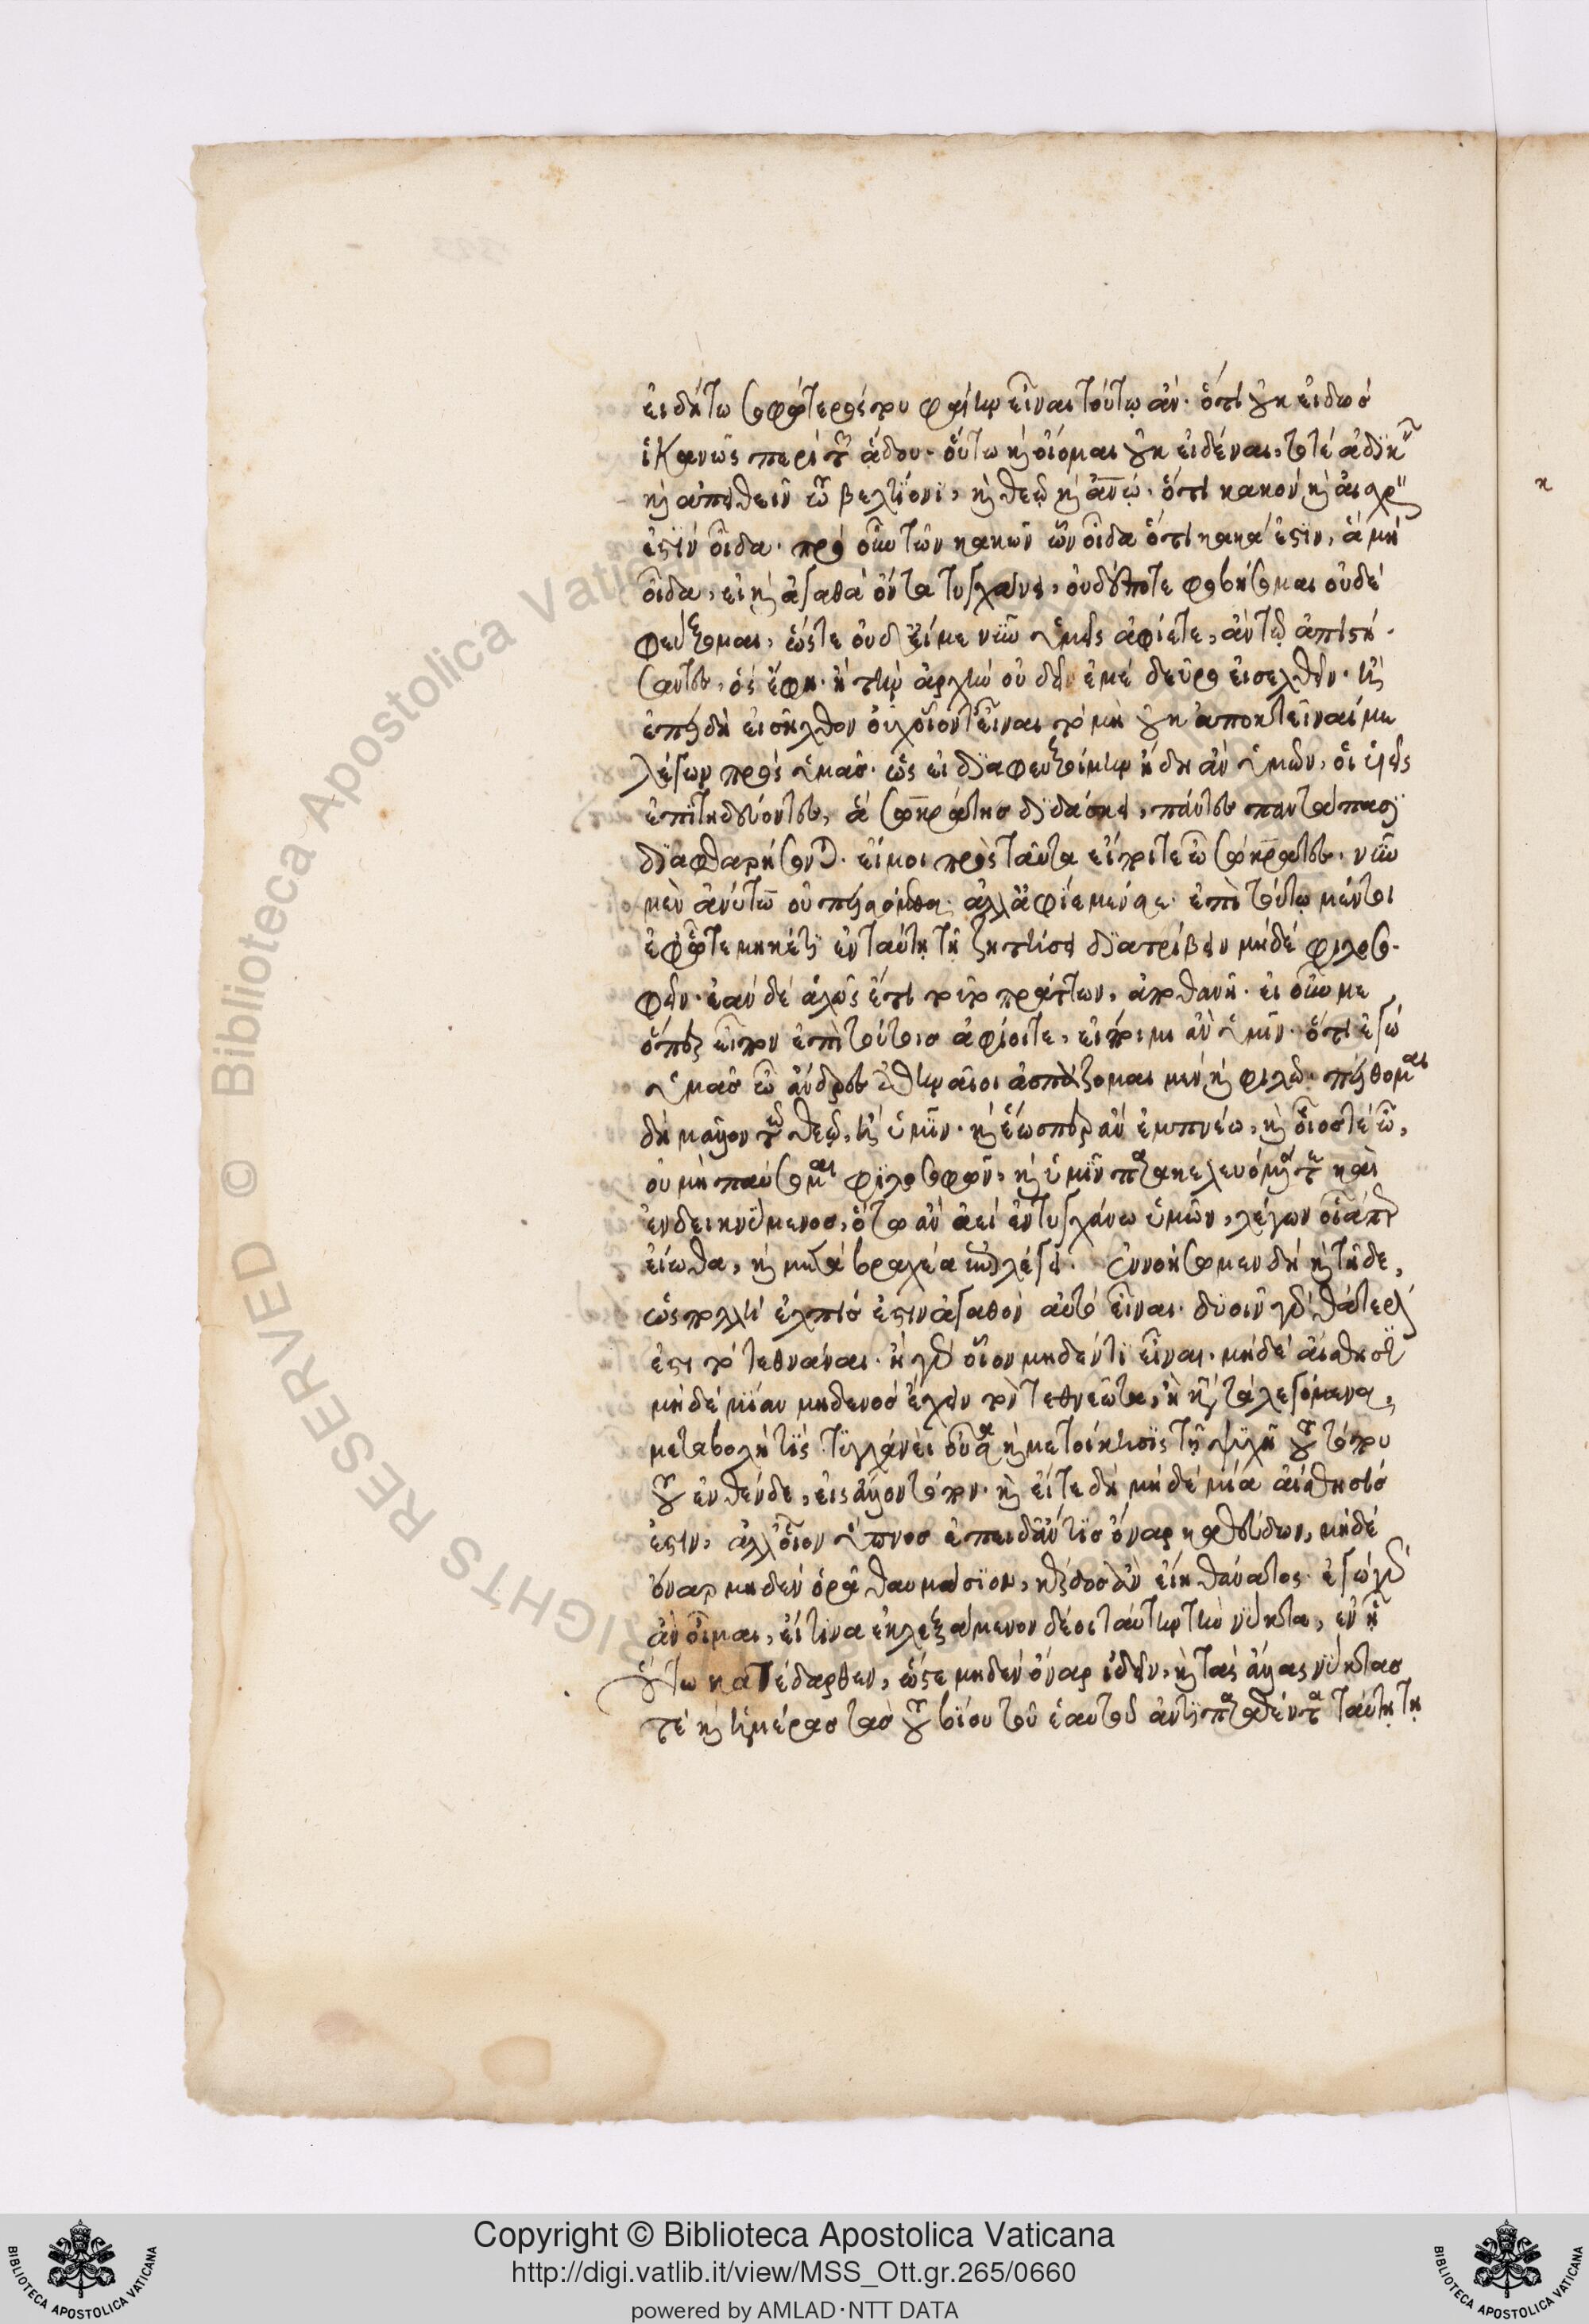 εἰ δή τω σοφώτερός του φαίην εἶναι τούτῳ ἄν. ὅτι οὐκ εἰδὼς
ἱκανῶς περὶ τῶν ἅδου. οὕτω καὶ οἴομαι οὐκ εἰδέναι, τό τε ἀδικεῖν
καὶ ἀπειθεῖν τῷ βελτίονι, καὶ θεῷ καὶ ἀνω. ὅτι κακὸν καὶ αἰσχρὸν
ἐστὶν οἶδα. πρὸ οὖν τῶν κακῶν ὧν οἶδα ὅτι κακά ἐστιν, ἃ μὴ
οἶδα, εἰ καὶ ἀγαθὰ ὄντα τυγχάνει, οὐδέποτε φοβήσομαι οὐδὲ
φεύξομαι, ὥστε οὐδ εἴ με νῦν ὑμεῖς ἀφίετε, ἀνύτῳ ἀπιστή-
σαντες, ὃς ἔφη. ἢ τὴν ἀρχὴν οὐ δεῖν ἐμὲ δεῦρο εἰσελθεῖν. ἢ
ἐπειδὴ εἰσῆλθον οὐχ οἷόντ εἶναι τὸ μὴ οὐκ ἀποκτεῖναί με
λέγων πρὸς ὑμᾶς. ὡς εἰ διαφευξοίμην ἤδη ἂν ὑμῶν, οἱ υἱεῖς
ἐπιτηδεύοντες, ἃ σωκράτης διδάσκει, πάντες παντάπασι
διαφθαρήσονται. εἴ μοι πρὸς ταῦτα εἴποιτε ὦ σώκρατες. νῦν
μὲν ἀνύτῳ οὐ πεισόμεθα. ἀλλ ἀφίεμέν σε. ἐπὶ τούτῳ μέντοι
ἐφ ᾧτε μηκέτι ἐν ταύτῃ τῇ ζητήσει διατρίβειν μηδὲ φιλοσο-
φεῖν. ἐὰν δὲ ἁλῷς ἔτι τοῦτο πράττων, ἀποθανῇ. εἰ οὖν με
ὅπερ εἶπον ἐπὶ τούτοις ἀφίοιτε, εἴποιμι ἂν ὑμῖν. ὅτι ἐγὼ
ὑμᾶς ὦ ἄνδρες ἀθηναῖοι ἀσπάζομαι μὲν καὶ φιλῶ. πείθομαι
δὴ μᾶλλον τῷ θεῷ, ἢ ὑμῖν. καὶ ἕωσπερ ἂν ἐμπνέω, καὶ οἷόστε ὦ,
οὐ μὴ παύσομαι φιλοσοφῶν, καὶ ὑμῖν παρακελευόμενός τε καὶ
ἐνδεικνύμενος, ὅτῳ ἂν ἀεὶ ἐντυγχάνω ὑμῶν, λέγων οἷάπερ
εἴωθα, καὶ μετὰ βραχέα λέγει. ἐννοήσωμεν δὴ καὶ τῇδε,
ὡς πολλὴ ἐλπίς ἐστιν ἀγαθὸν αὐτὸ εἶναι. δυοῖν γὰρ θάτερόν
ἐστι τὸ τεθνάναι. ἢ γὰρ οἷον μηδέν τι εἶναι. μηδὲ αἴσθησιν
μηδεμίαν μηδενὸς ἔχειν τὸν τεθνεῶτα, ἢ κατὰ τὰ λεγόμενα,
μεταβολή τις τυγχάνει οὖσα καὶ μετοίκησις τῇ ψυχῇ τοῦ τόπου
τοῦ ἐνθένδε, εἰς ἄλλον τόπον. καὶ εἴτε δὴ μηδεμία αἴσθησίς
ἐστιν, ἀλλ οἷον ὕπνος ἐπειδάν τις ὄναρ καθεύδων, μηδὲ
ὄναρ μηδὲν ὁρᾷ θαυμάσιον, κέρδος ἂν εἴη θάνατος. ἐγὼ γὰρ
ἂν οἶμαι, εἴ τινα ἐκλεξάμενον δέοι ταύτην τὴν νύκτα, ἐν ᾗ
οὕτω κατέδαρθεν, ὥστε μηδὲν ὄναρ ἰδεῖν, καὶ τὰς ἄλλας νύκτας
τὲ καὶ ἡμέρας τὰς τοῦ βίου τοῦ ἑαυτοῦ ἀντιπαραθέντα ταύτῃ τῇ